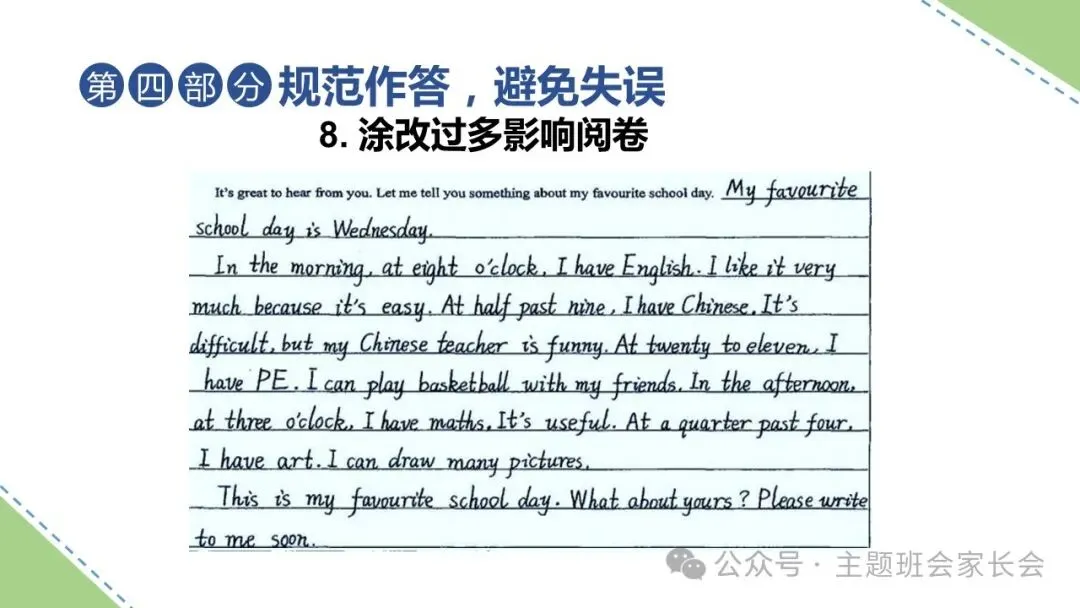 第四部分 规范作答，避免失误
8. 涂改过多影响阅卷
It's great to hear from you. Let me tell you something about my favourite school day. My favourite
school day is Wednesday.
In the morning, at eight o'clock, I have English. I like it very
much because it's easy. At half past nine, I have Chinese. It's
difficult, but my Chinese teacher is funny. At twenty to eleven, I
have PE. I can play basketball with my friends. In the afternoon,
at three o'clock, I have maths. It's useful. At a quarter past four,
I have art. I can draw many pictures.
This is my favourite school day. What about yours? Please write
to me soon.
公众号·主题班会家长会